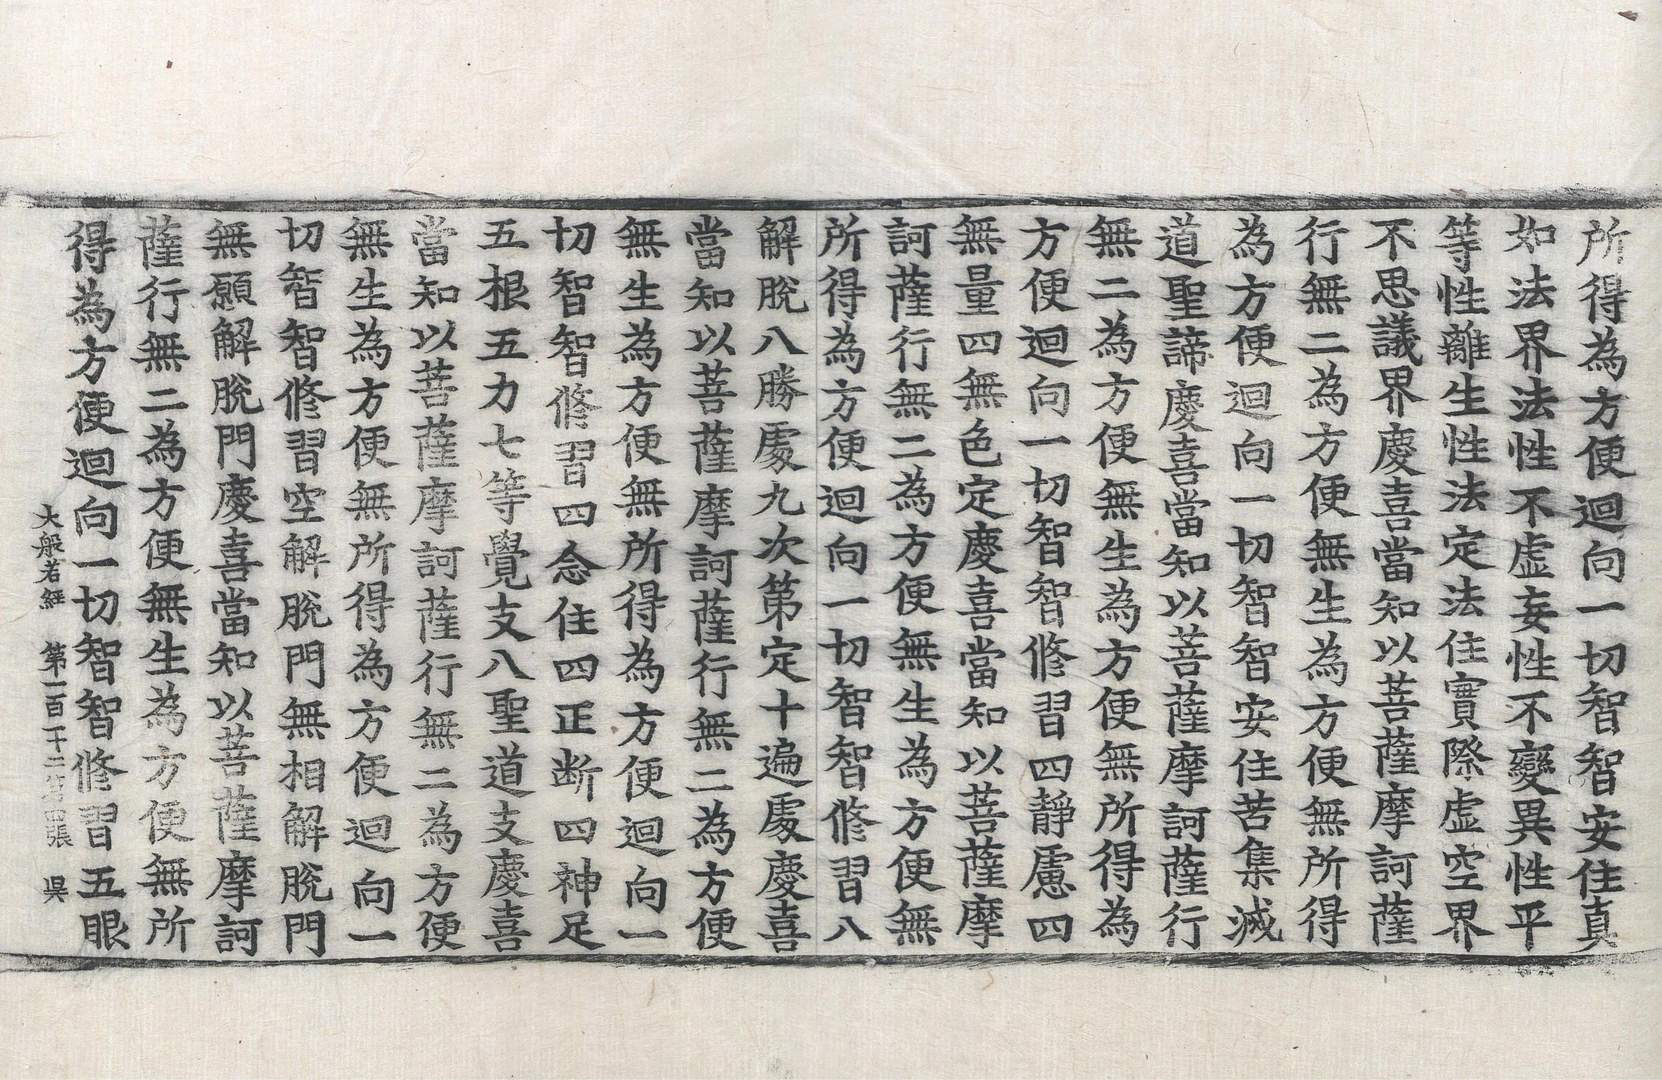 所得為方便迴向一切智智安住真
如法界法性不虛妄性不變異性平
等性離生性法定法住實際虛空界
不思議界慶喜當知以菩薩摩訶薩
行無二為方便無生為方便無所得
為方便迴向一切智智安住苦集滅
道聖諦慶喜當知以菩薩摩訶薩行
無二為方便無生為方便無所得為
方便迴向一切智智修習四靜慮四
無量四無色定慶喜當知以菩薩摩
訶薩行無二為方便無生為方便無
所得為方便迴向一切智智修習八
解脫八勝處九次第定十遍處慶喜
當知以菩薩摩訶薩行無二為方便
無生為方便無所得為方便迴向一
切智智修習四念住四正斷四神足
五根五力七等覺支八聖道支慶喜
當知以菩薩摩訶薩行無二為方便
無生為方便無所得為方便迴向一
切智智修習空解脫門無相解脫門
無願解脫門慶喜當知以菩薩摩訶
薩行無二為方便無生為方便無所
得為方便迴向一切智智修習五眼
大般若経 第一百十二 第四張 吳